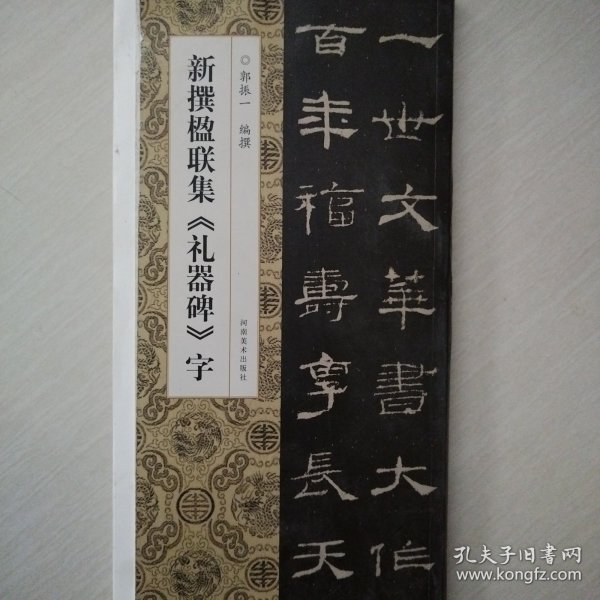 一世文華書大作
百年福壽享長天
◎郭振一 编撰
新撰楹联集《礼器碑》字
河南美术出版社
孔夫子旧书网
www.kongfz.com